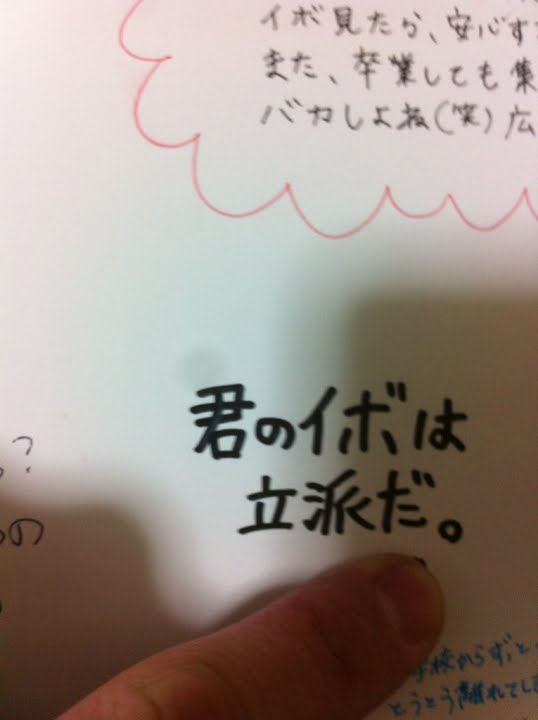 イボ見たか、安心す
また、卒業しても集
バカしよね(笑)広
君のイボは
立派だ。
?
の
学校からずっと
とうとう離れてし